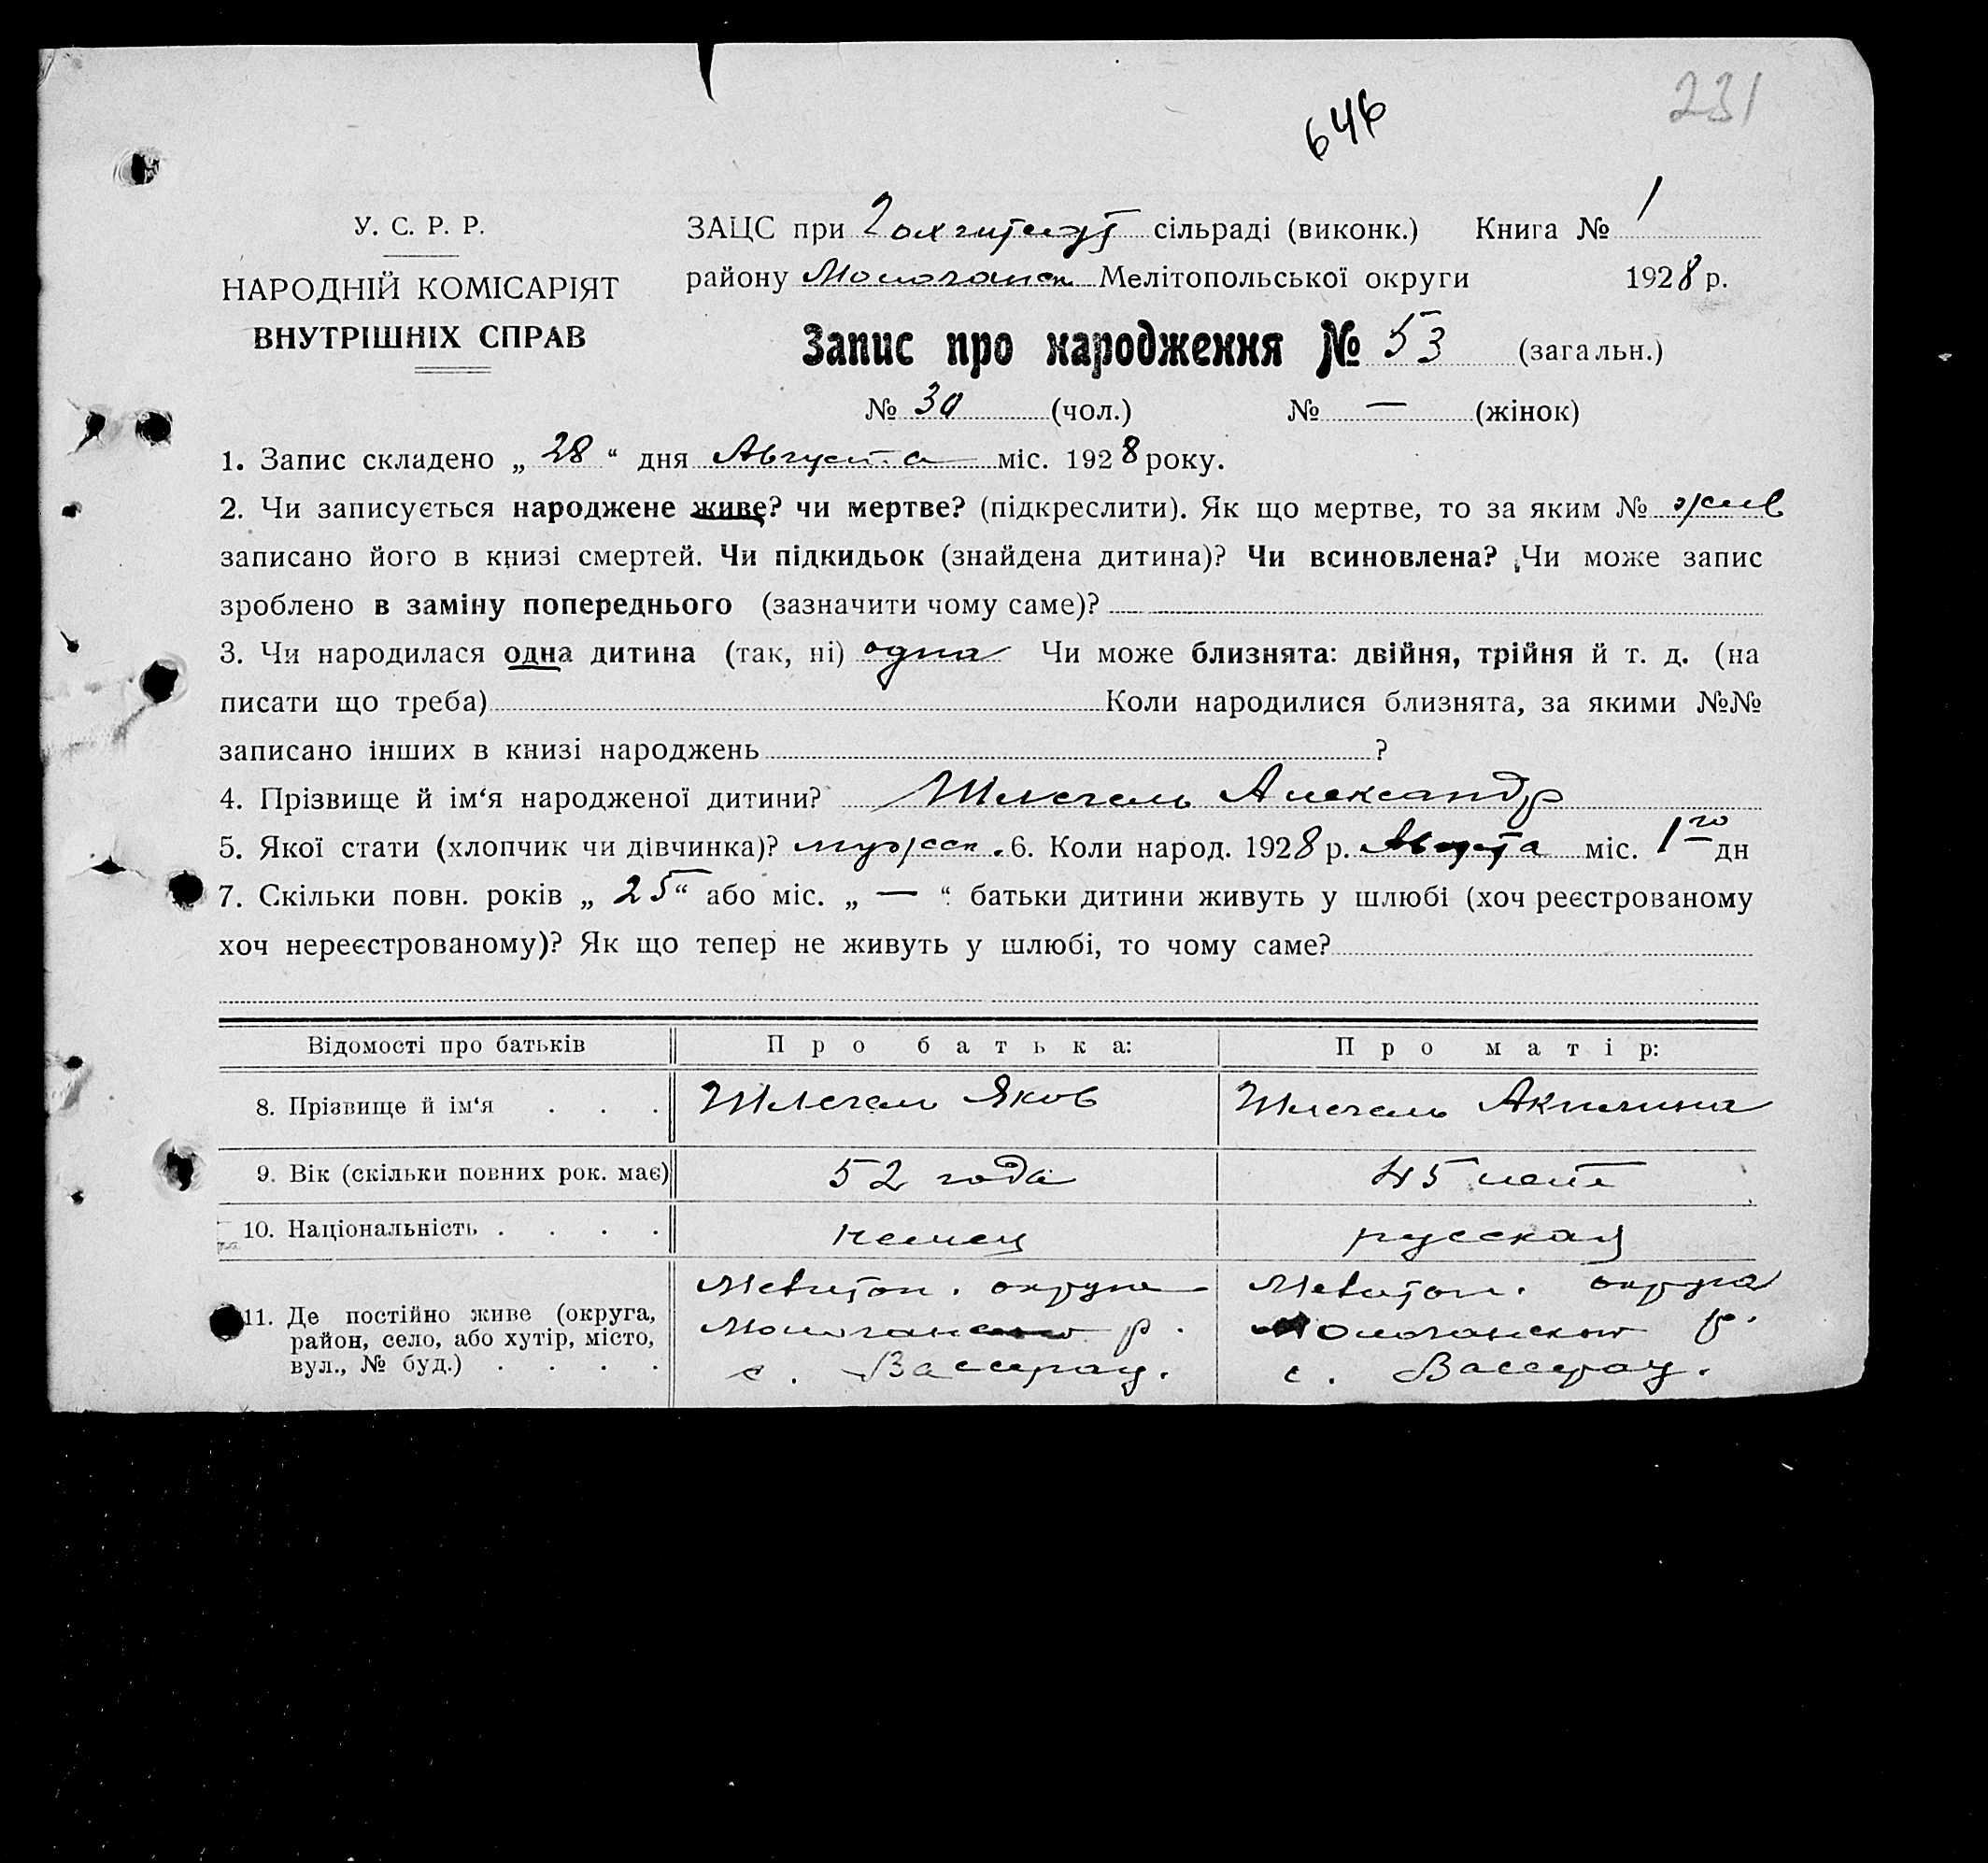 231
646
У. С. Р. Р.
НАРОДНІЙ КОМІСАРІЯТ
ВНУТРІШНІХ СПРАВ
ЗАЦС при Гохштедт сільраді (виконк.) Книга № 1
району Молочанск Мелітопольської округи 1928 р.
Запис про народження № 53 (загальн.)
№ 30 (чол.) № — (жінок)
1. Запис складено „ 28 “ дня Августа міс. 1928 року.
2. Чи записується народжене живе? чи мертве? (підкреслити). Як що мертве, то за яким № жив
записано його в книзі смертей. Чи підкидьок (знайдена дитина)? Чи всиновлена? Чи може запис
зроблено в заміну попереднього (зазначити чому саме)?
3. Чи народилася одна дитина (так, ні) одна Чи може близнята: двійня, трійня й т. д. (на
писати що треба) Коли народилися близнята, за якими №№
записано інших в книзі народжень ?
4. Прізвище й ім‘я народженої дитини? Шлегель Александр
5. Якої стати (хлопчик чи дівчинка)? мужск. 6. Коли народ. 1928 р. Августа міс. 1го дн
7. Скільки повн. років „ 25 “ або міс. „ — “ батьки дитини живуть у шлюбі (хоч реєстрованому
хоч нереєстрованому)? Як що тепер не живуть у шлюбі, то чому саме?
Відомості про батьків Про батька: Про матір:
8. Прізвище й ім‘я . . . Шлегель Яков Шлегель Акилина
9. Вік (скільки повних рок. має) 52 года 45 лет
10. Національність . . . . немец русская
11. Де постійно живе (округа, район, село, або хутір, місто, вул., № буд.) . . . .
Мелитоп. округа
Молочанского р.
с. Вассерау.
Мелитоп. округа
Молочанского р.
с. Вассерау.